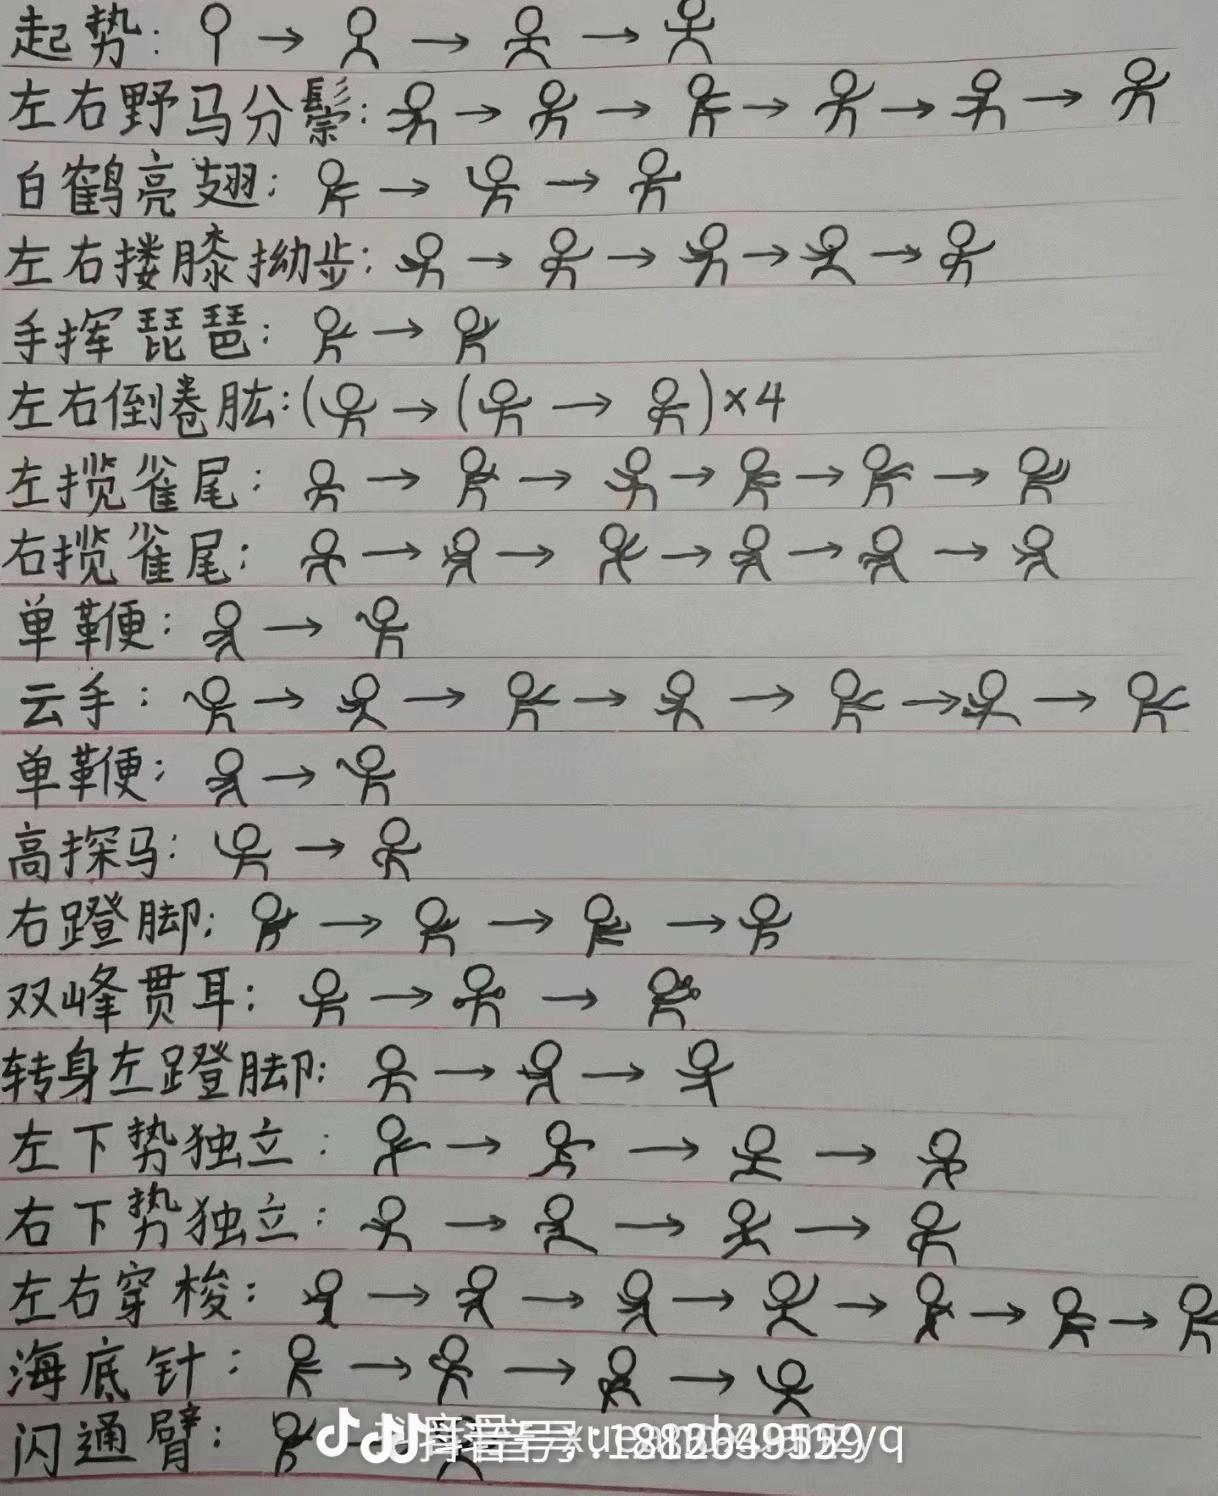 起势: → → →
左右野马分鬃: → → → → →
白鹤亮翅: → →
左右搂膝拗步: → → → →
手挥琵琶: →
左右倒卷肱: ( → ( → ) ×4
左揽雀尾: → → → → →
右揽雀尾: → → → → →
单鞭: →
云手: → → → → → →
单鞭: →
高探马: →
右蹬脚: → → →
双峰贯耳: → →
转身左蹬脚: → →
左下势独立: → → →
右下势独立: → → →
左右穿梭: → → → → → →
海底针: → → →
闪通臂: